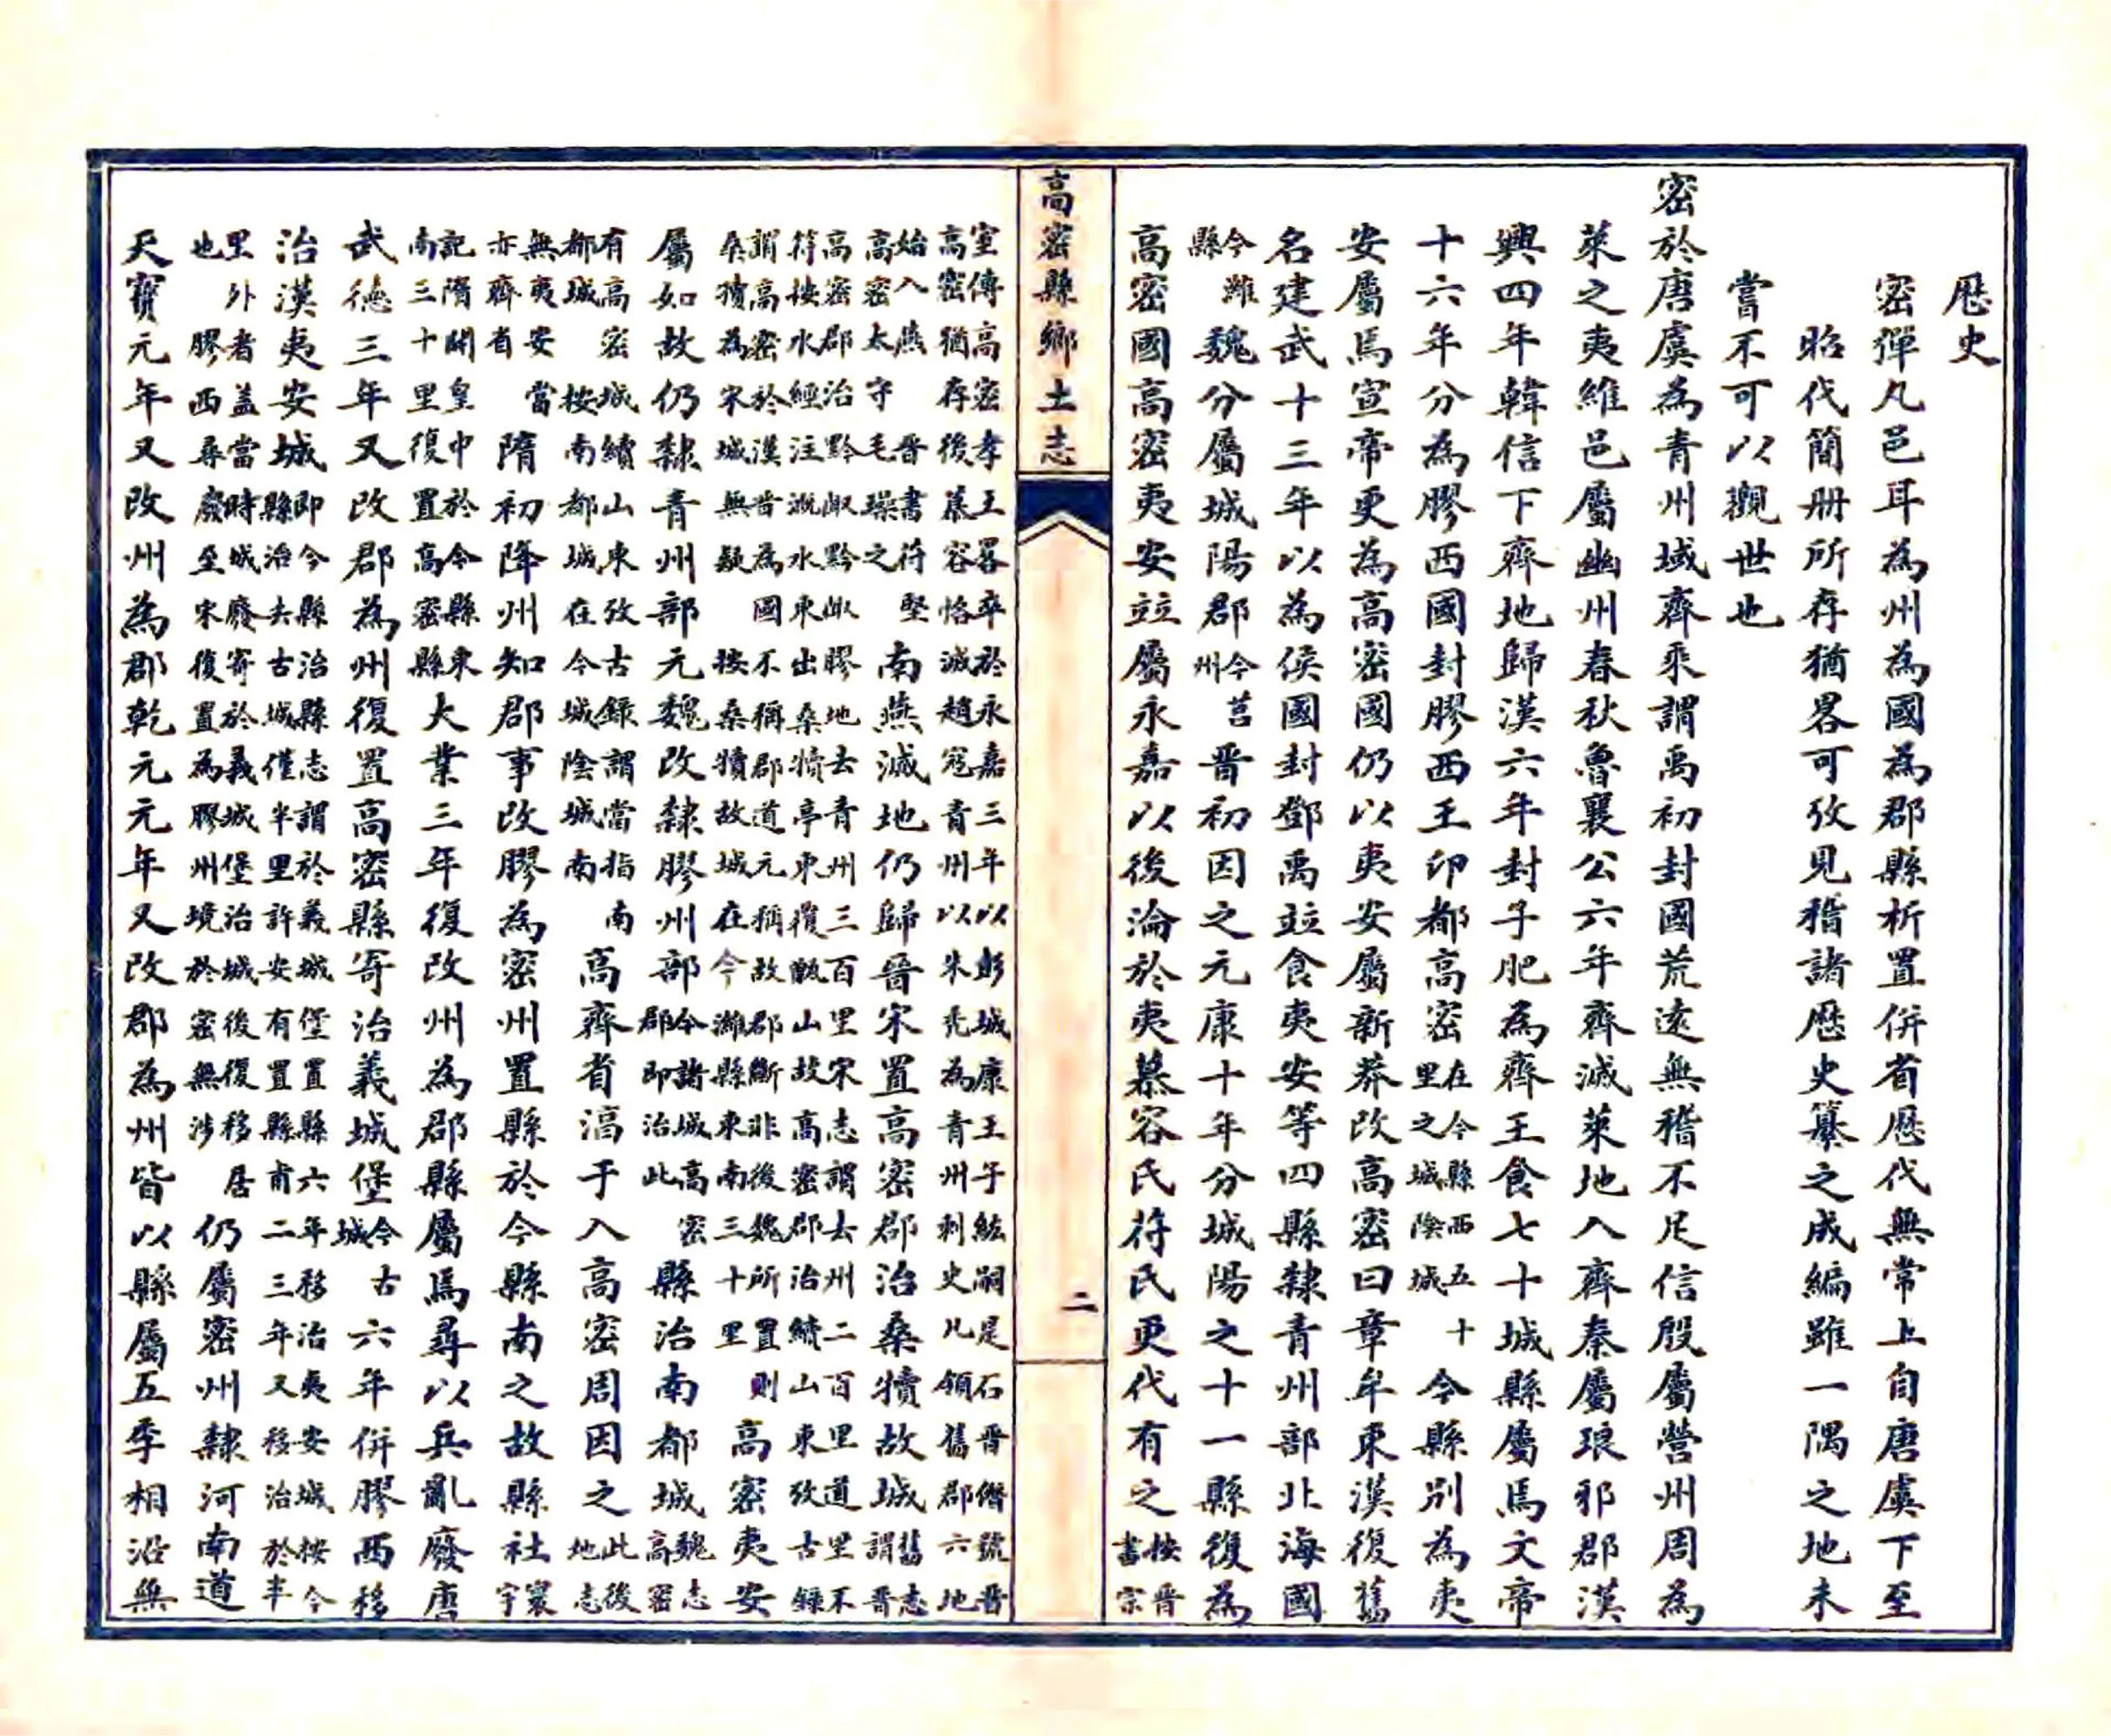 歷史
密彈丸邑耳為州為國為郡縣析置併省歷代無常上自唐虞下至
昭代簡册所存猶畧可攷見稽諸歷史纂之成編雖一隅之地未
嘗不可以觀世也
密於唐虞為青州域齊乘謂禹初封國荒遠無稽不足信殷屬營州周為
萊之夷維邑屬幽州春秋魯襄公六年齊滅萊地入齊秦屬琅邪郡漢
興四年韓信下齊地歸漢六年封子肥為齊王食七十城縣屬焉文帝
十六年分為膠西國封膠西王卬都高密在今縣西五十里之城陰城今縣別為夷
安屬焉宣帝更為高密國仍以夷安屬新莽改高密曰章牟東漢復舊
名建武十三年以為侯國封鄧禹竝食夷安等四縣隸青州部北海國
今濰縣魏分屬城陽郡今莒州晉初因之元康十年分城陽之十一縣復為
高密國高密夷安竝屬永嘉以後淪於夷慕容氏苻氏更代有之按晉書宗
高密縣鄉土志
二
室傳高密孝王畧卒於永嘉三年以彭城康王子紘嗣是石晉僭號晉高密猶存後慕容恪滅趙寇青州以朱禿為青州刺史凡領舊郡六地
始入燕晉書苻堅高密太守毛璪之南燕滅地仍歸晉宋置高密郡治桑犢故城舊志謂晉
高密郡治黔陬黔陬膠地去青州三百里宋志謂去州二百里道里不符按水經注溉水東出桑犢亭東覆甑山故高密郡治續山東攷古錄
謂高密於漢晉為國不稱郡道元稱故郡斷非後魏所置則桑犢為宋城無疑按桑犢故城在今濰縣東南三十里高密夷安
屬如故仍隸青州部元魏改隸膠州部今諸城高密郡即治此縣治南都城魏志高密
有高密城續山東攷古錄謂當指南都城按南都城在今城陰城南高齊省湻于入高密周因之此後地志
無夷安當亦齊省隋初降州知郡事改膠為密州置縣於今縣南之故縣社寰宇
記隋開皇中於今縣東南三十里復置高密縣大業三年復改州為郡縣屬焉尋以兵亂廢唐
武德三年又改郡為州復置高密縣寄治義城堡今古城六年併膠西移
治漢夷安城即今縣治縣志謂於義城堡置縣六年移治夷安城按今縣治去古城僅半里許安有置縣甫二三年又移治於半
里外者蓋當時城廢寄於義城堡治城後復移居也膠西尋廢至宋復置為膠州境於密無涉仍屬密州隸河南道
天寶元年又改州為郡乾元元年又改郡為州皆以縣屬五季相沿無